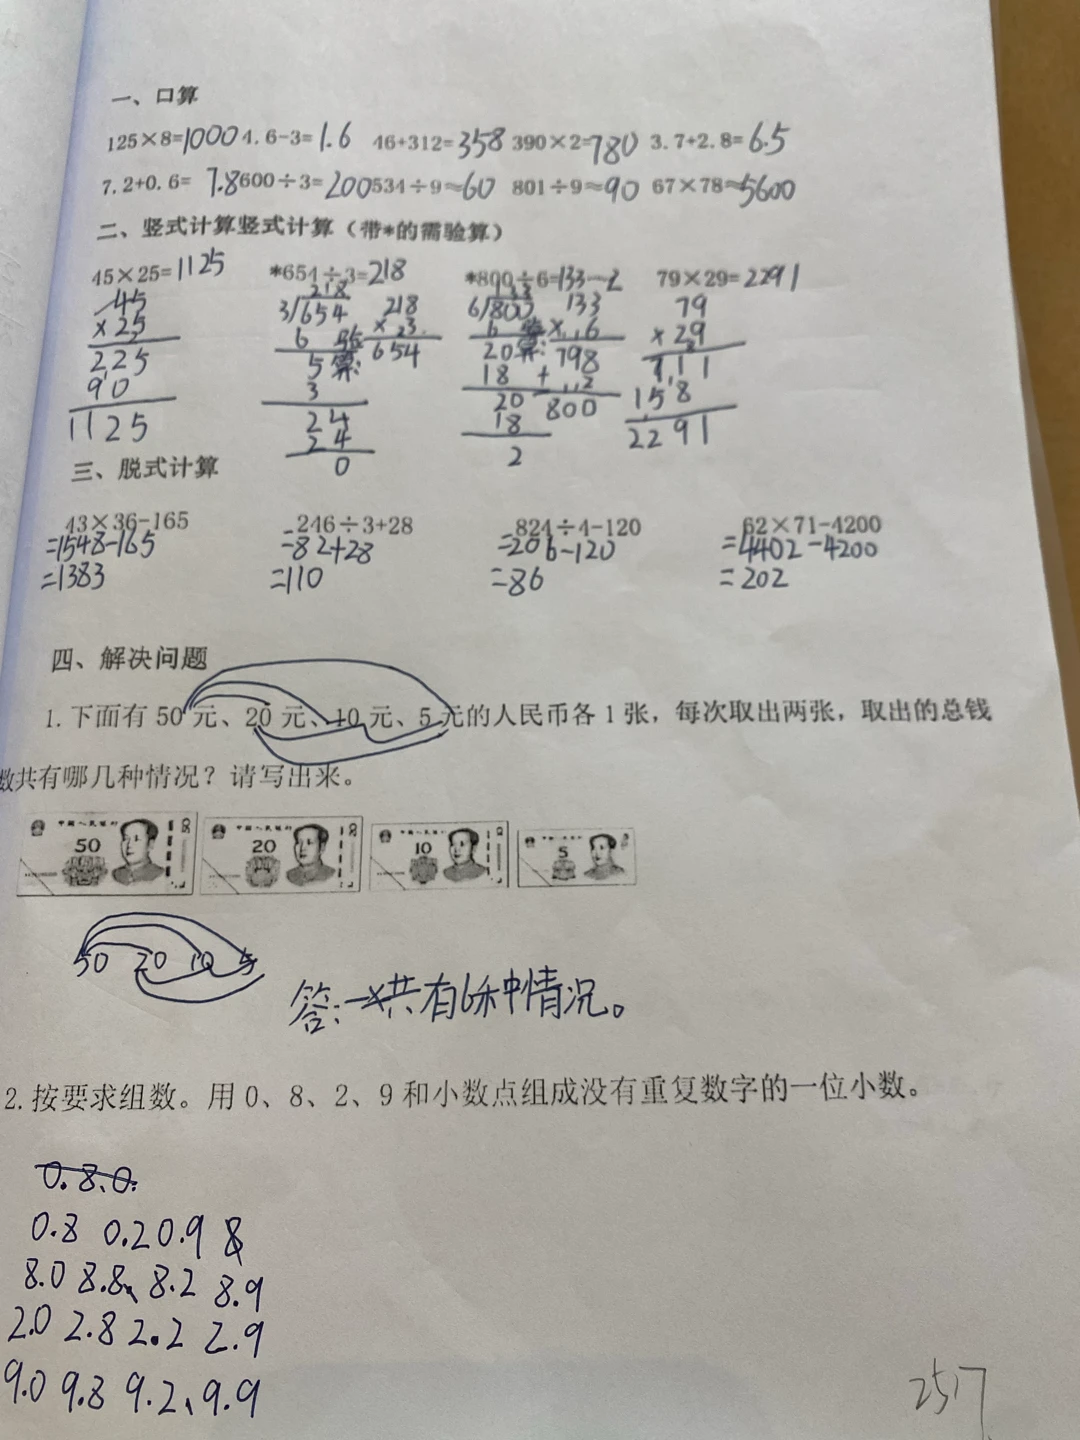 一、口算
125×8=1000 4.6-3=1.6 46+312=358 390×2=780 3.7+2.8=6.5
7.2+0.6=7.8 600÷3=200 534÷9≈60 801÷9≈90 67×78≈5600
二、竖式计算竖式计算（带*的需验算）
45×25=1125 *654÷3=218 *800÷6=133…2 79×29=2291
45 218 133 79
×25 3/654 218 6/800 133 ×29
225 6 验 ×3 6 验 ×6 711
90 5 算: 654 20 算: 798 158
1125 3 18 +2 2291
24 20 800
24 18
0 2
三、脱式计算
43×36-165 246÷3+28 824÷4-120 62×71-4200
=1548-165 =82+28 =206-120 =4402-4200
=1383 =110 =86 =202
四、解决问题
1.下面有 50 元、20 元、10 元、5 元的人民币各 1 张，每次取出两张，取出的总钱
数共有哪几种情况？请写出来。
50 20 10 5
50 20 10 5
答:一共有6种情况。
2.按要求组数。用 0、8、2、9 和小数点组成没有重复数字的一位小数。
0.8.0.
0.8 0.2 0.9 8
8.0 8.8、8.2 8.9
2.0 2.8 2.2 2.9
9.0 9.8 9.2、9.9